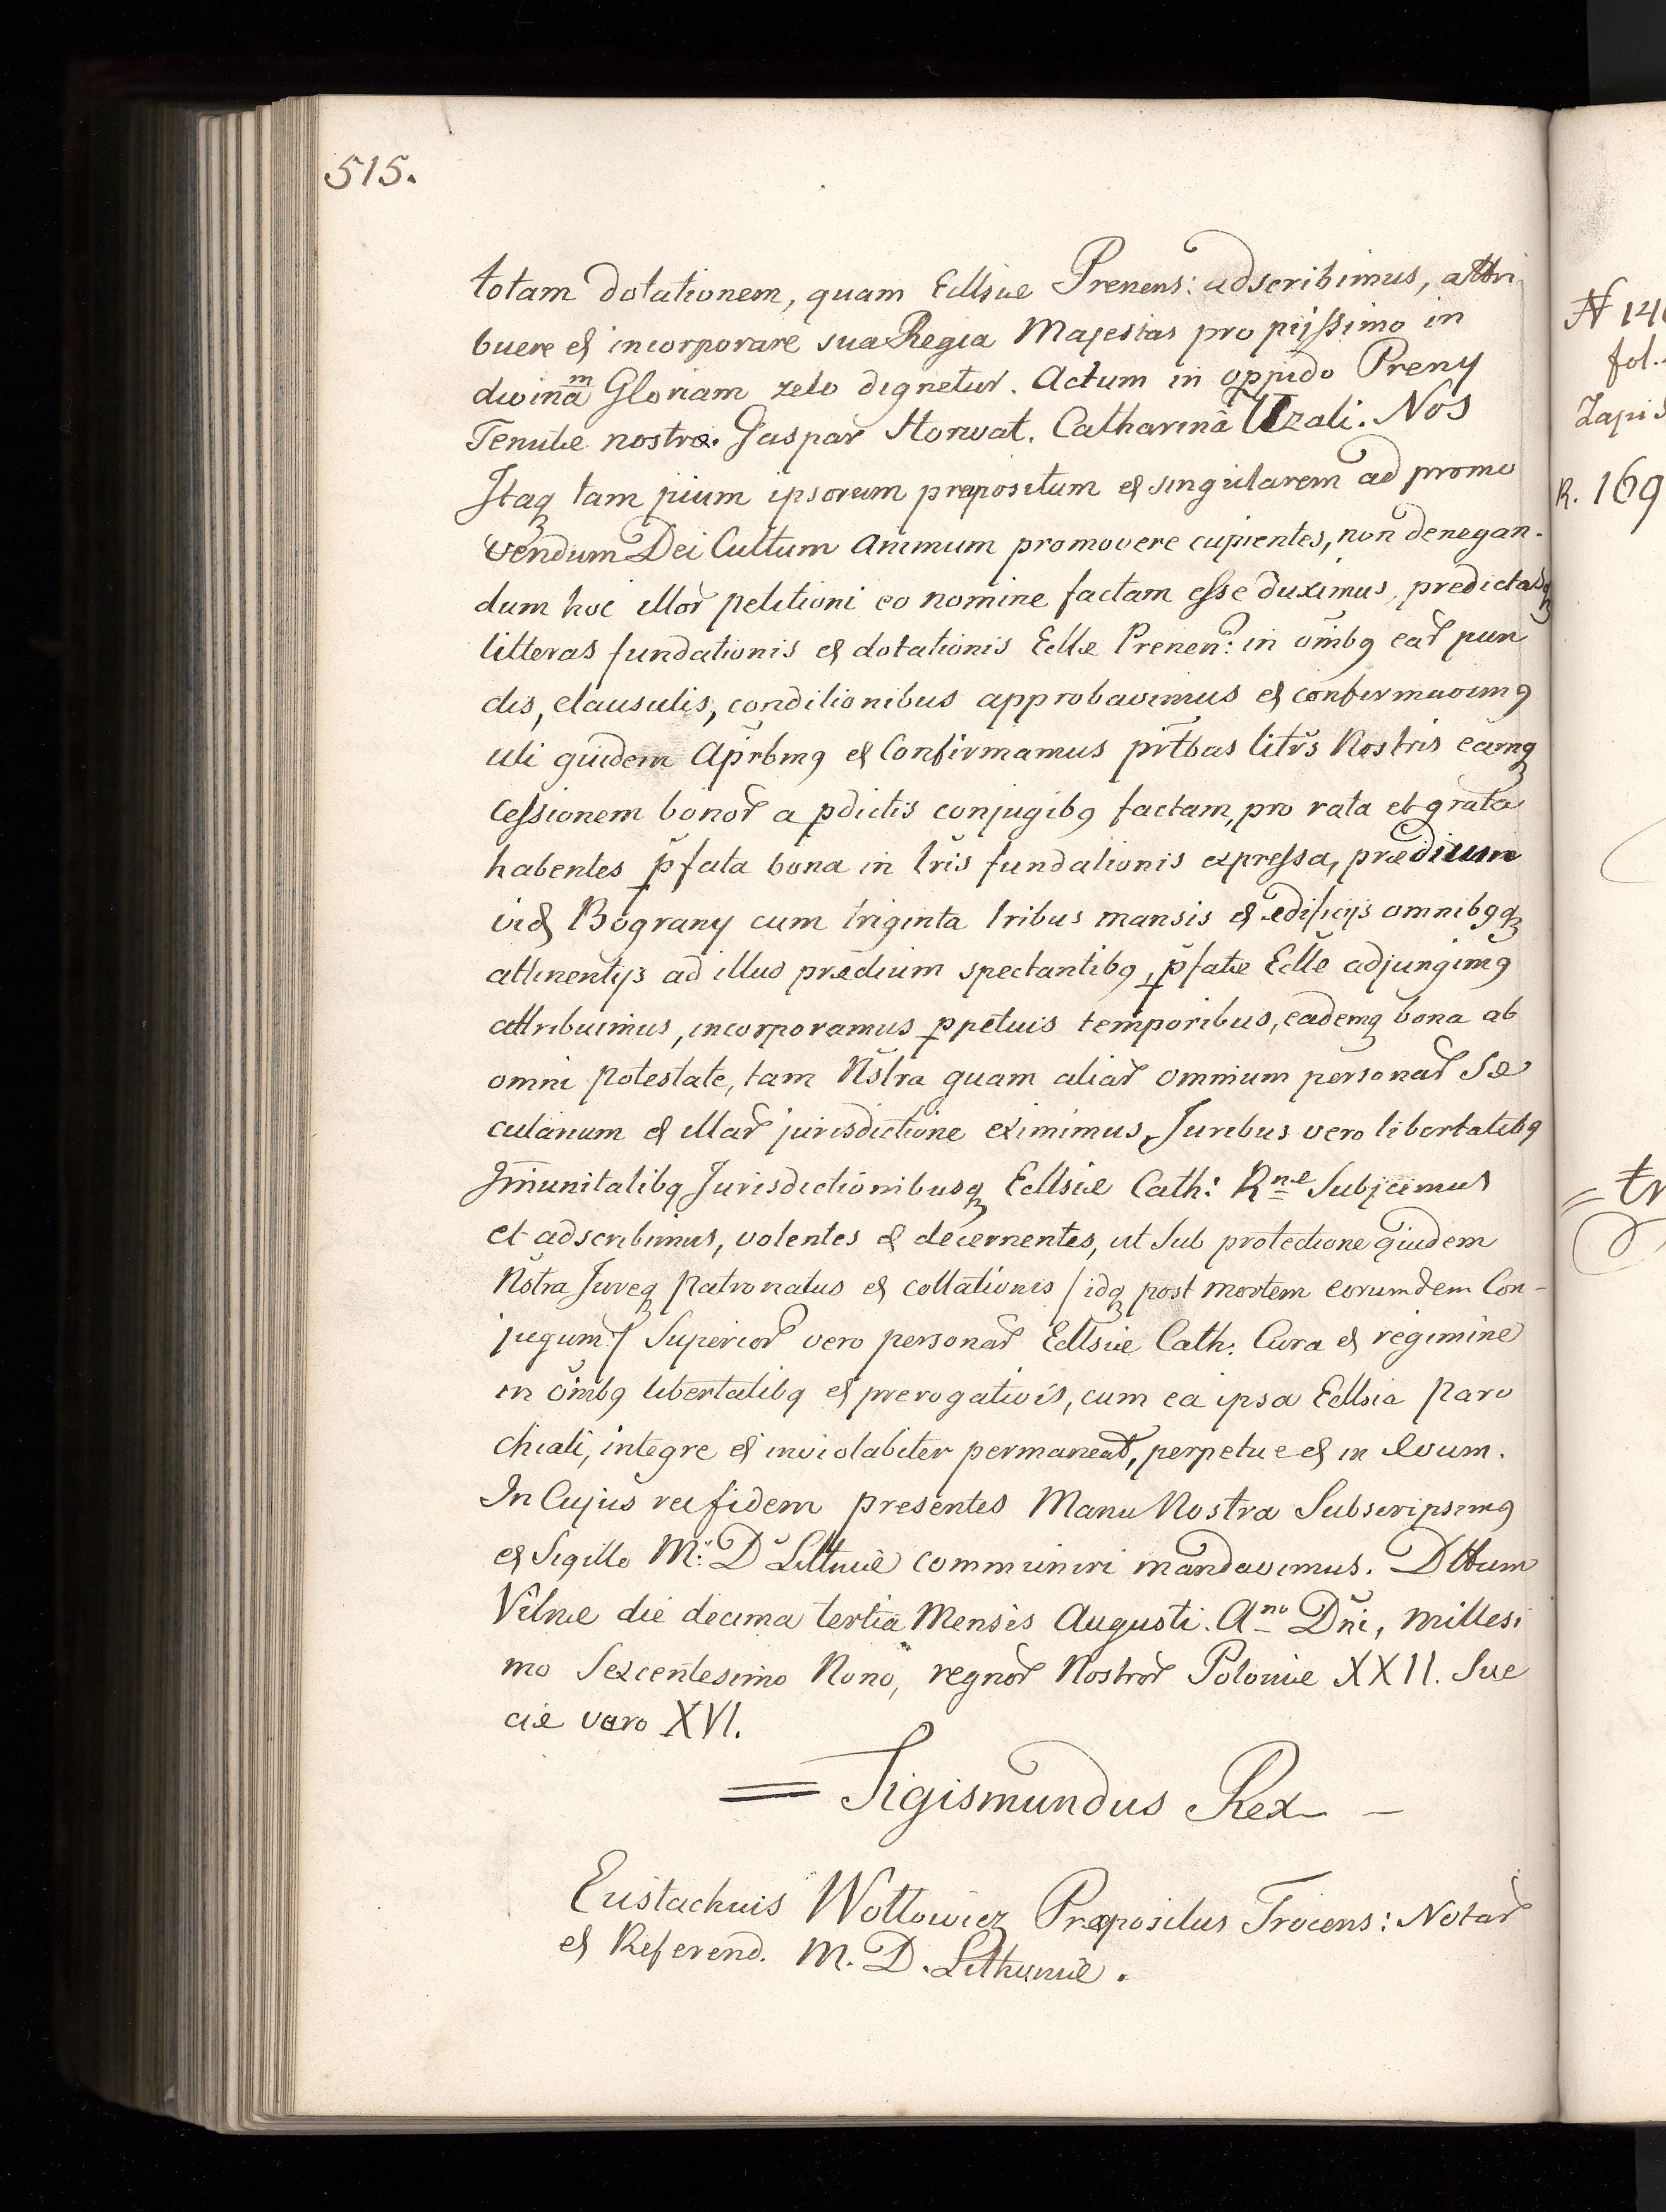 515.
totam dotationem, quam Ecllsiæ Prenens: adscribimus, attri
buere et incorporare sua Regia Majestas pro piissimo in
divinãm Gloriam zelo dignetur. Actum in oppido Preny
Tenutæ nostræ. Gaspar Horwat. Catharina Uzali. Nos
Itaq tam pium ipsorum prepositum et singularem ad promo
vendum Dei Cultum animum promovere cupientes, non denegan-
dum hoc illor petitioni eo nomine factam esse duximus, predictasq
litteras fundationis et dotationis Ecllæ Prenen: in omibq ear pun
ctis, clausulis, conditionibus approbavimus et confirmavimq
uti quidem Aprbmq et Confirmamus prtbus litrs Nostris eamq
cessionem bonor a pdictis conjugibq factam, pro rata et grata
habentes pfata bona in lris fundationis expressa, prædium
vid Bograny cum triginta tribus mansis et ædificijs omnibqq
attinentijs ad illud prædium spectantibq, pfatæ Eclle adjungimq
attribuimus, incorporamus ppetuis temporibus, eademq bona ab
omni potestate, tam Nstra quam aliar omnium personar Sæ
cularium et illar jurisdictione eximimus, Juribus vero libertatibq
Imunitatibq Jurisdictionibusq Ecllsiæ Cath: Rnæ Subjcimus
et adscribimus, volentes et decernentes, ut sub protectione quidem
Nstra Jureq Patronatus et collationis / idq post mortem eorumdem Con-
jugum:/ Superior vero personar Ecllsiæ Cath. Cura et regimine
in omibq libertatibq et prerogativis, cum ea ipsa Ecllsia Paro
chiali, integre et inviolabiter permaneat, perpetue et in ævum.
In Cujus rei fidem presentes Manu Nostra Subscripsimq
et Sigillo M: D Littuæ communiri mandavimus. Dttum
Vilnæ die decima tertia Mensis Augusti. Ano Dni, millesi
mo Sexcentesimo Nono, regnor Nostror Poloniæ XXII. Sue
ciæ vero XVI.
= Sigismundus Rex –
Eustachius Wollowicz Præpositus Trocens: Notar
et Referend. M. D. Lithuniæ.
N 14
fol.
Zapis
R. 169
= tr